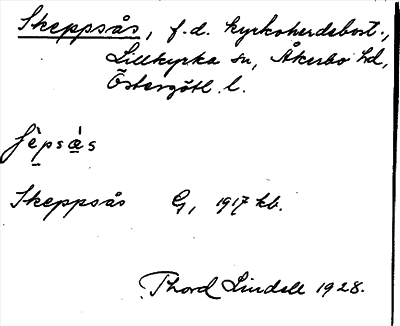 Skeppsås, f.d. kyrkoherdebost.,
Lillkyrka sn, Åkerbo hd,
Östergötl. l.
Skeppsås G, 1917 kb.
Thord Lindell 1928.